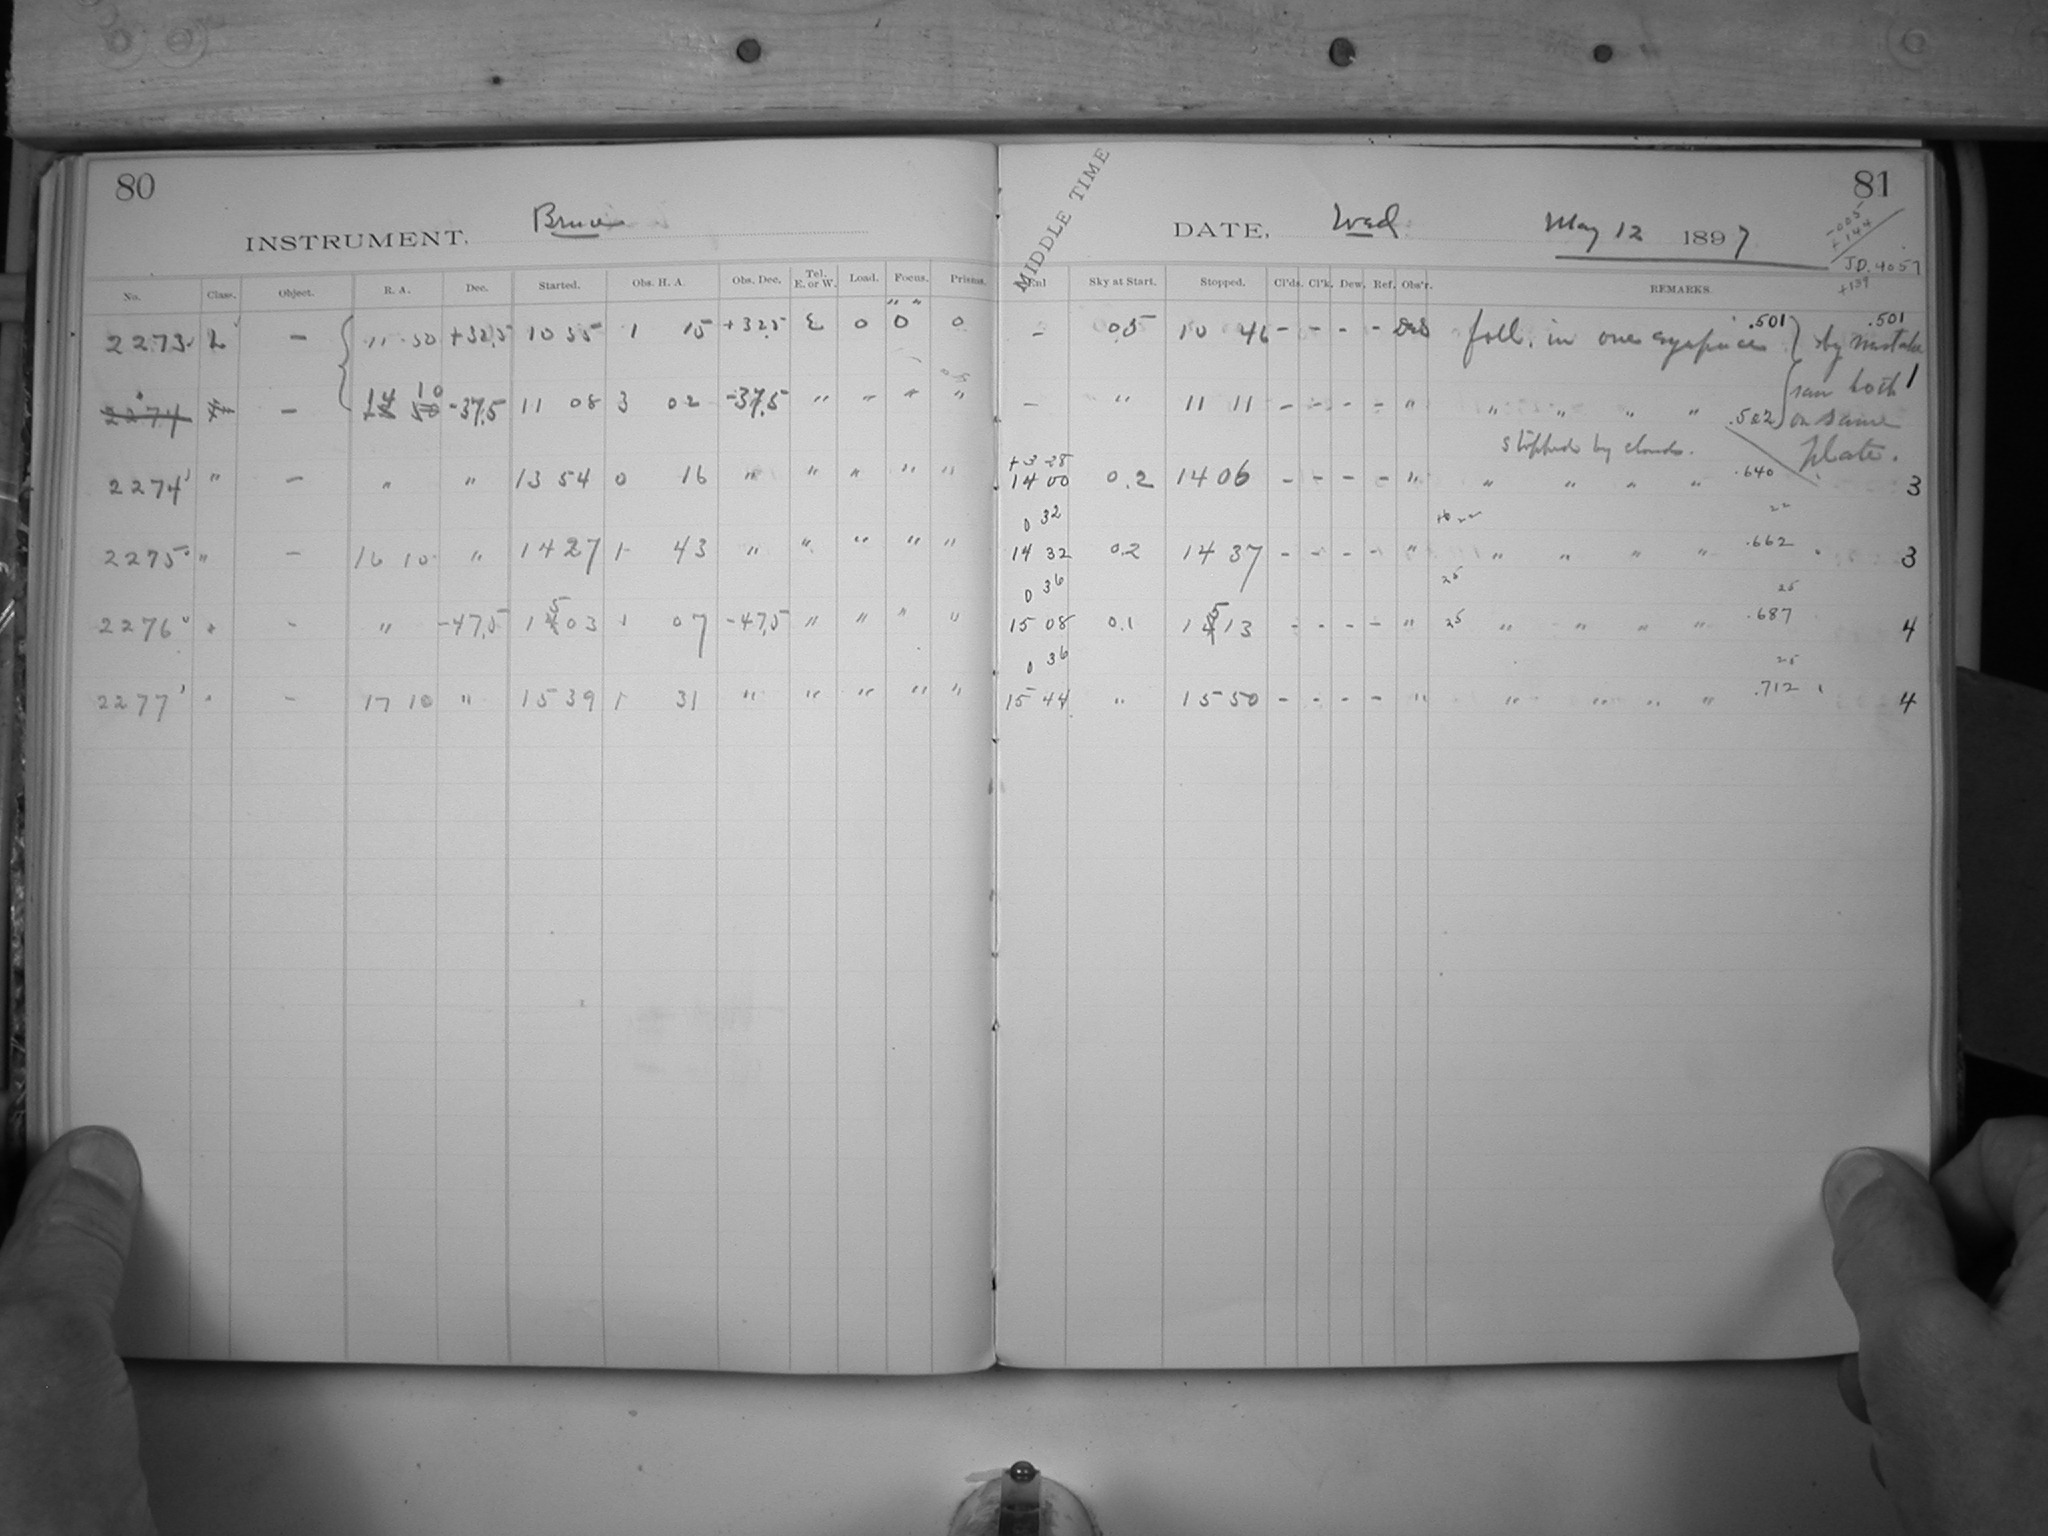 80
INSTRUMENT, Bruce
No. Class. Object. R. A. Dec. Started. Obs. H. A. Obs. Dec. Tel. E. or W. Load. Focus. Prisms.
2273 L — 11 50 +32.5 10 35 1 15 +32.5 E 0 0 0
2274 L — 14 10 -37.5 11 08 3 02 -37.5 " " " "
2274 " — " " 13 54 0 16 " " " " "
2275 " — 16 10 " 14 27 1 43 " " " " "
2276 " - " -47.5 15 03 1 07 -47.5 " " " "
2277 " - 17 10 " 15 39 1 31 " " " " "
81
MIDDLE TIME
DATE, Wed. May 12 1897
-005
+144
J.D. 4057
+139
Sky at Start. Stopped. Cl'ds. Cl'k. Dew. Ref. Obs'r. REMARKS.
- 0.5 10 46 - - - - foll. in one eyepiece .501 } by mistake .501
- " 11 11 - - - - " " " " " .502 } saw both on same plate. 1
stopped by clouds.
+3 28
14 00 0.2 14 06 - - - - " " " " " .640 3
0 32 22
14 32 0.2 14 37 - - - - " " " " " .662 3
0 36 25 25
15 08 0.1 15 13 - - - - " 25 " " " " .687 4
0 36 25
15 44 " 15 50 - - - - " " " " " .712 4